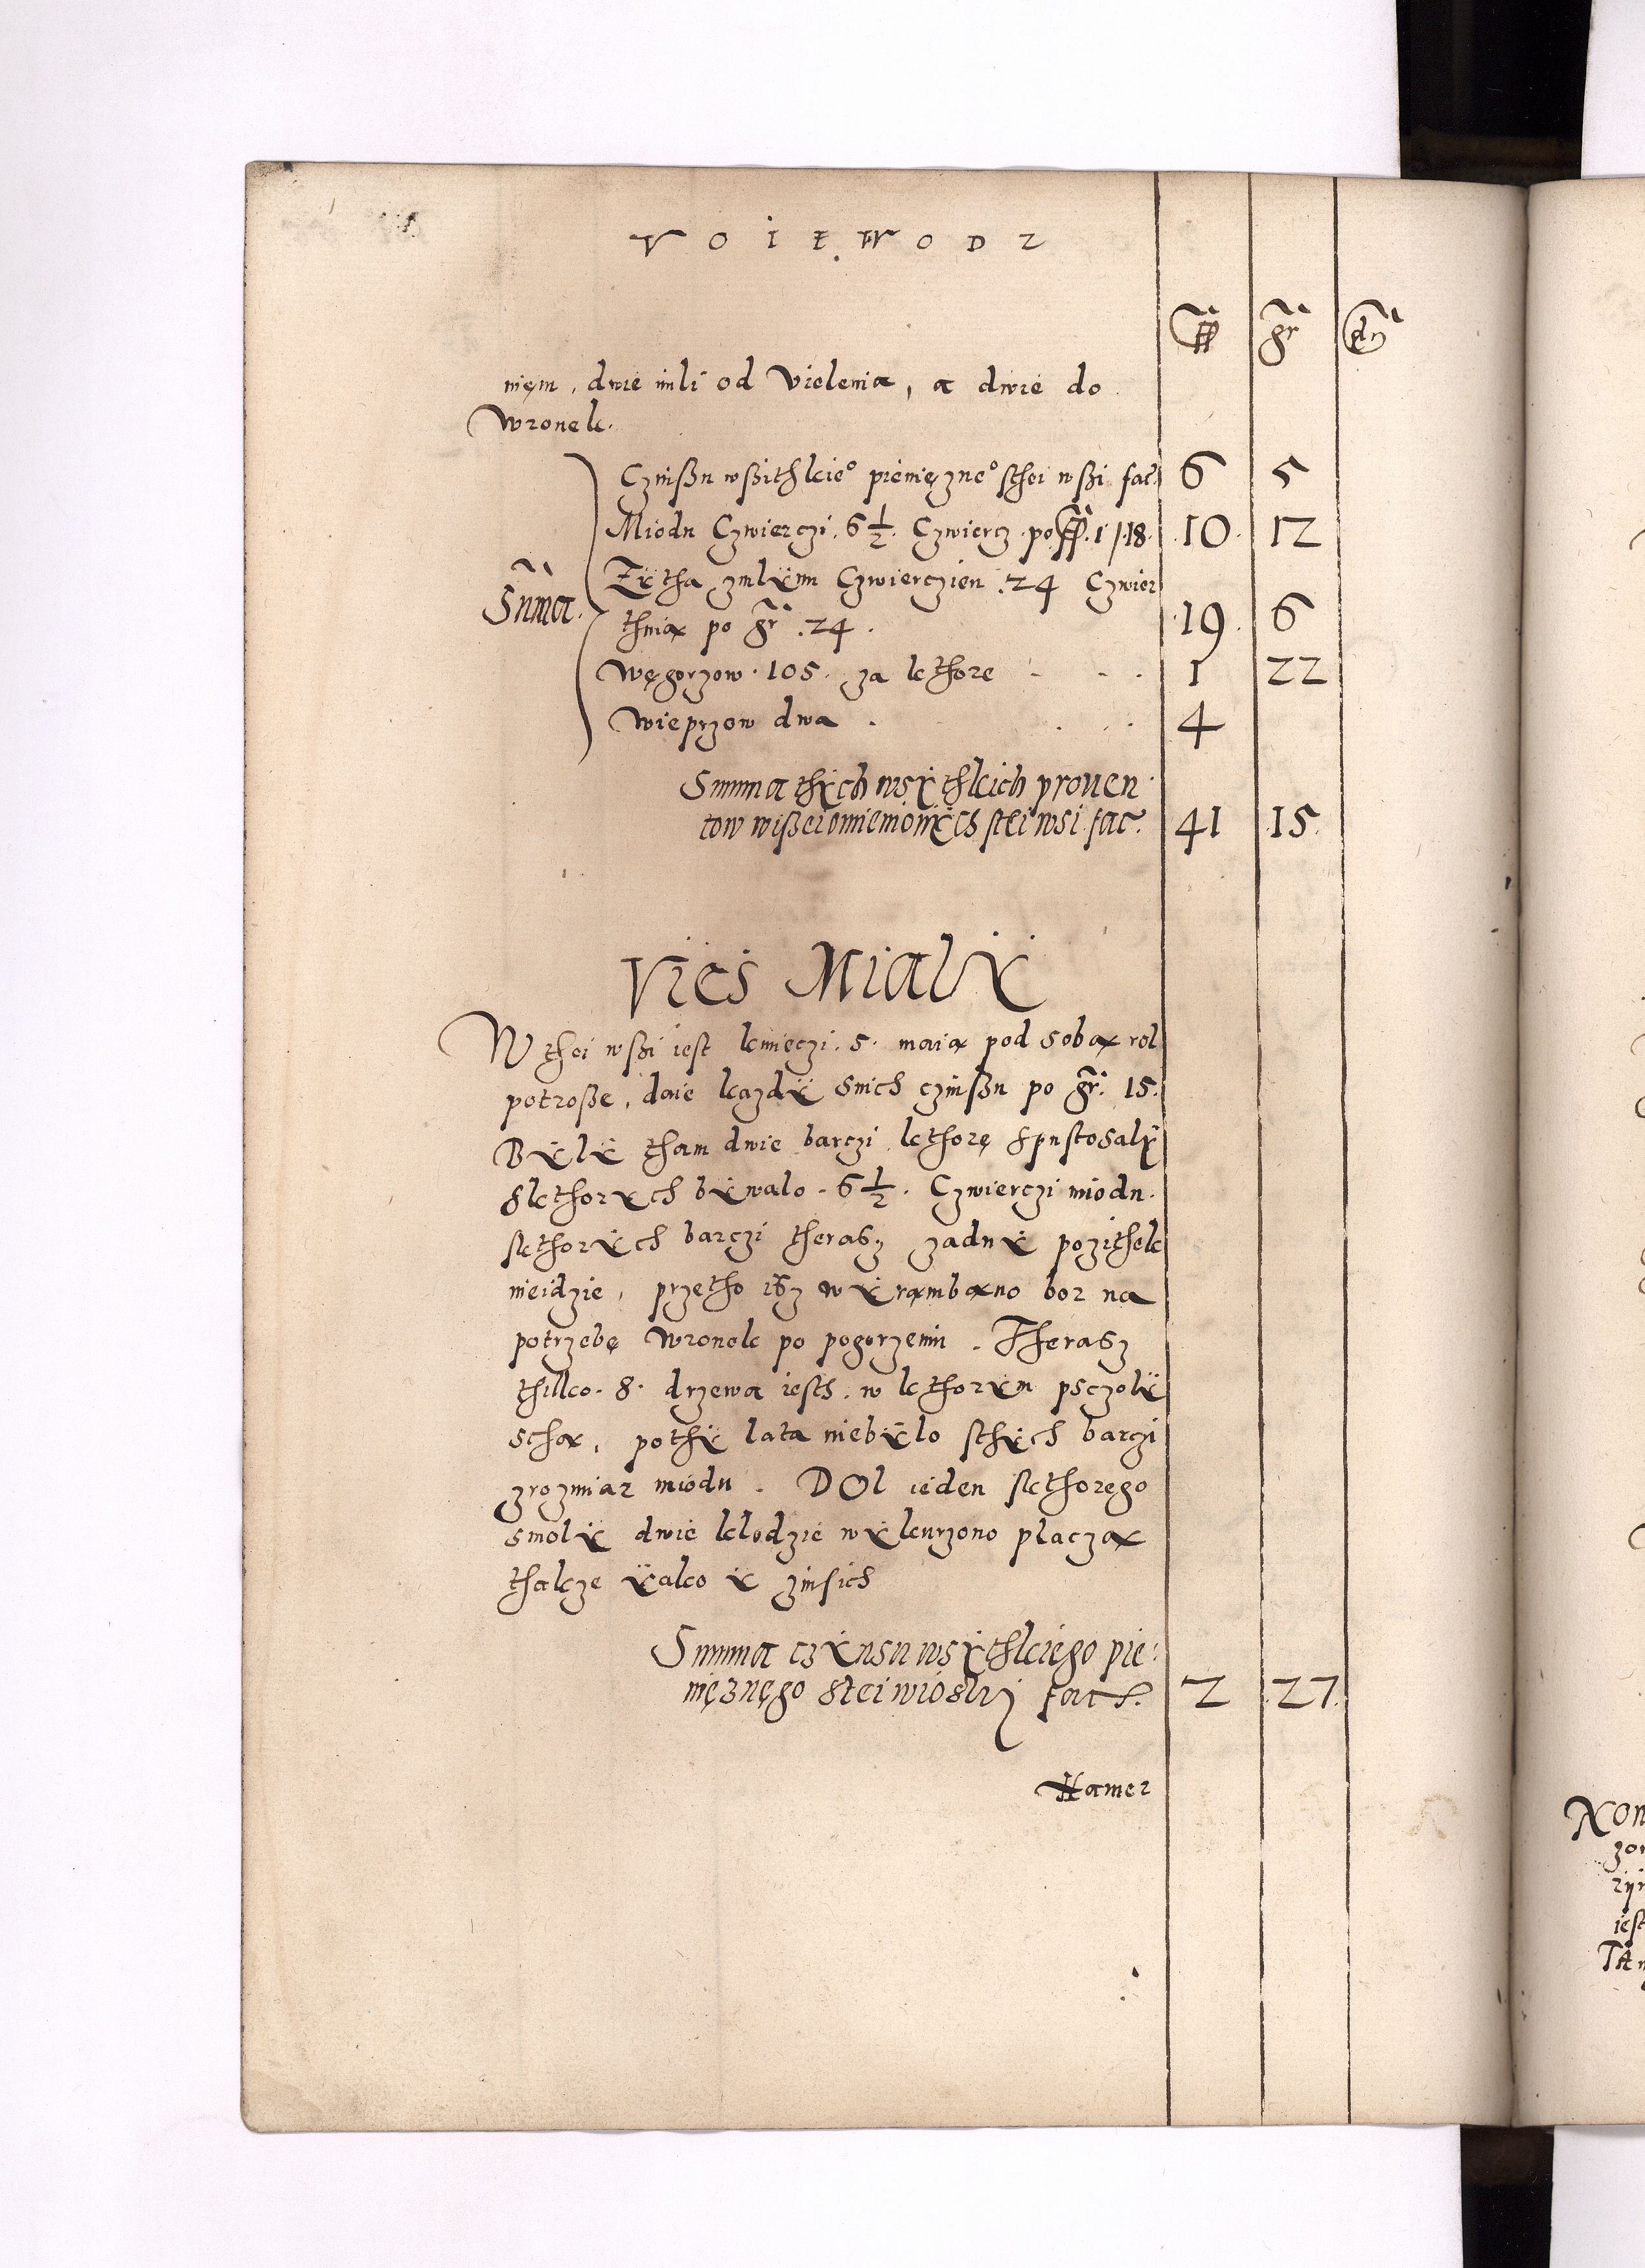 VOIEWODZ
ff gr dn
nięm, dwie mili od Vielenia, a dwie do
Wronek.
Czinßu wßithkie° pienięzne° sthei wßi fac. 6 5
Miodu Czwierczi. 6 1/2. Czwiercz po ff. 1 /. 18. 10. 12
Żÿtha zmlÿnu Czwierczien. 24 Czwier
Suma.
thnia̧ po gr. 24. 19. 6
Węgorzow. 105. za kthore - - . 1 22
Wieprzow dwa . . . . 4
Summa thÿch wsÿthkich prouen
tow wißei omienionÿch stei wsi fac. 41 15.
Vies Mialÿ
W thei wßi iest kmięczi. 5. maia̧ pod soba̧ rol
potroße, daie kazdÿ snich czinßu po gr. 15.
Bÿlÿ tham dwie barczi kthorę spustosalÿ
skthorÿch bÿwalo. 6 1/2. Czwierczi miodu.
skthorÿch barczi therasz zadnÿ pozithek
nieidzie, przetho isz wÿra̧mba̧no bor na
potrzebę Wronek po pogorzeniu. Therasz
thilko. 8. drzewa iesth. w kthorÿm psczolÿ
scha̧, pothÿ lata niebÿlo sthÿch barczi
zrozmiar miodu. DOl ieden skthorego
smolÿ dwie klodzie wÿkurzono placza̧
thakze ÿako ÿ zinsich
Summa czÿnsu wsÿthkiego pie:
nięznęgo stei wioskj fact. 2 27.
Hamer